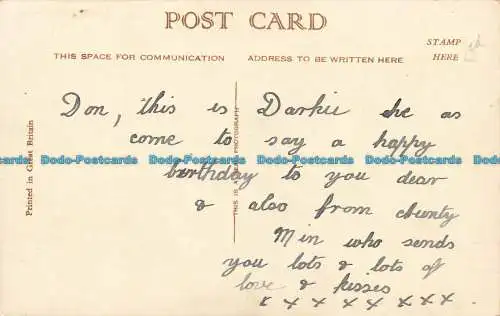 POST CARD
THIS SPACE FOR COMMUNICATION ADDRESS TO BE WRITTEN HERE
STAMP
HERE
Printed in Great Britain
THIS IS A PHOTOGRAPH
Don, this is Darkie he as
come to say a happy
Dodo-Postcards Dodo-Postcards Dodo-Postcards Dodo-Postcards
birthday to you dear
& also from Aunty
Min who sends
you lots & lots of
love & kisses
x x x x x x x x